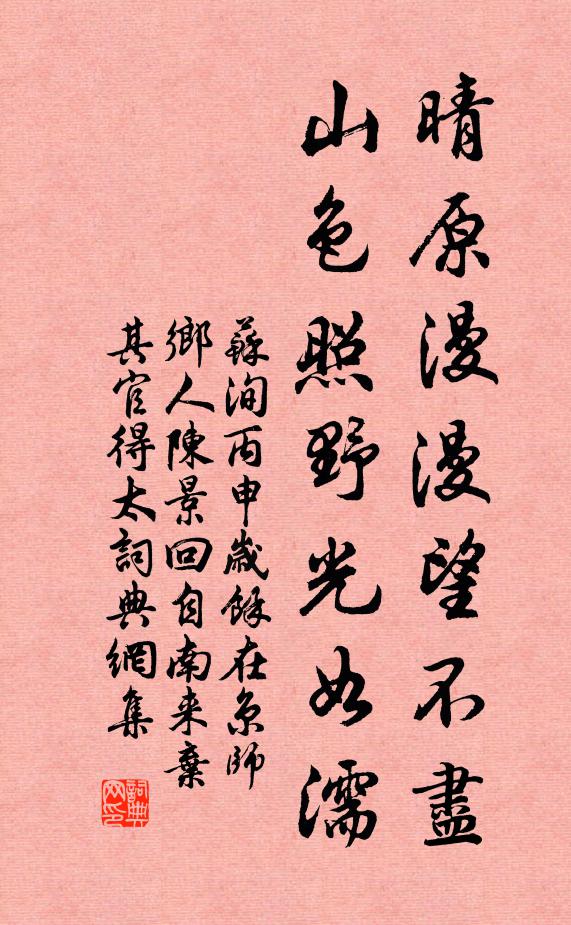 晴原漫漫望不盡
山色照野光如濡
蘇洵丙申歲餘在京師
鄉人陳景回自南來棄
其官得太詞典網集
詞典
網印